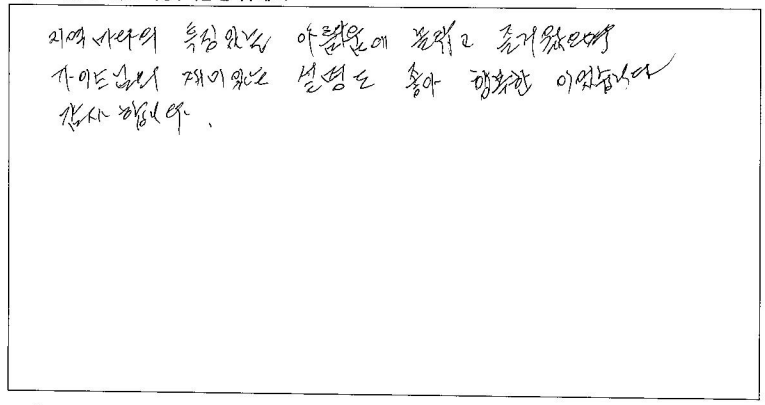 지역마다의 특징있는 아름다움에 놀랍고 즐거웠으며
가이드님의 재미있는 설명도 좋아 행복한 이었습니다
감사합니다.